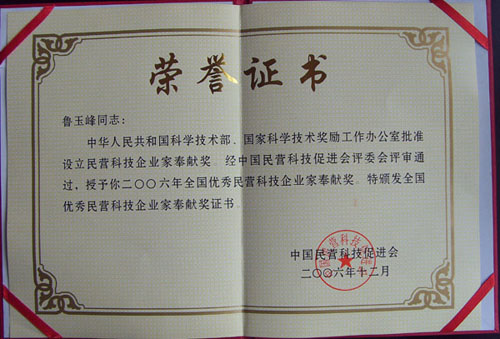 荣誉证书
鲁玉峰同志：
中华人民共和国科学技术部、国家科学技术奖励工作办公室批准
设立民营科技企业家奉献奖。经中国民营科技促进会评委会评审通
过，授予你二〇〇六年全国优秀民营科技企业家奉献奖。特颁发全国
优秀民营科技企业家奉献奖证书。
中国民营科技促进会
二〇〇六年十二月